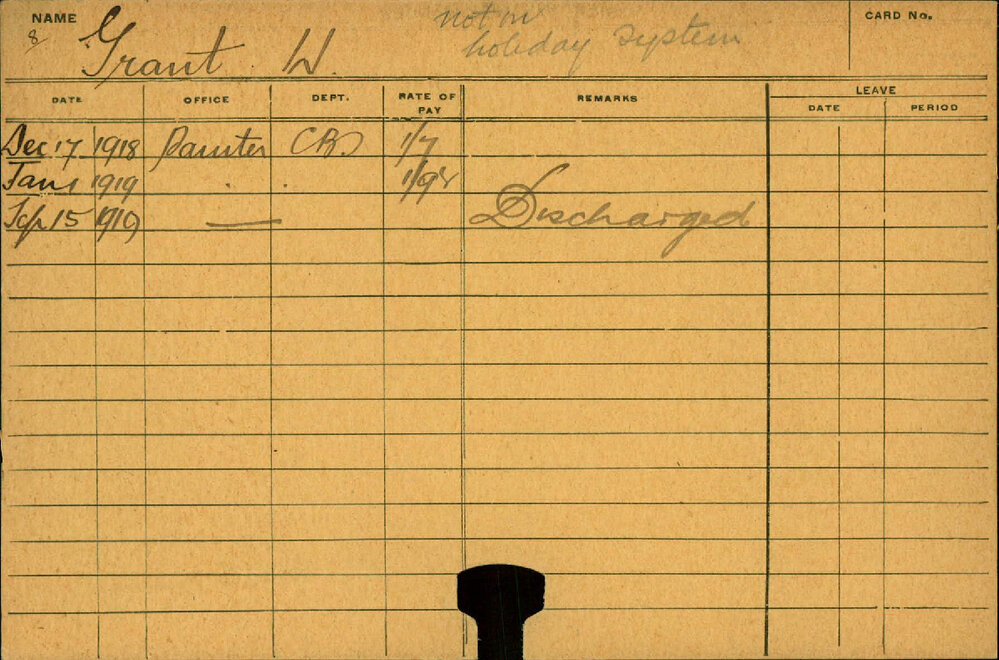 NAME
8
Grant W.
not on
holiday system
CARD No.
DATE OFFICE DEPT. RATE OF PAY REMARKS LEAVE
DATE PERIOD
Dec 17 1918 Painter 1/7
Jan 1 1919 " "
Sep 15 1919 — Discharged